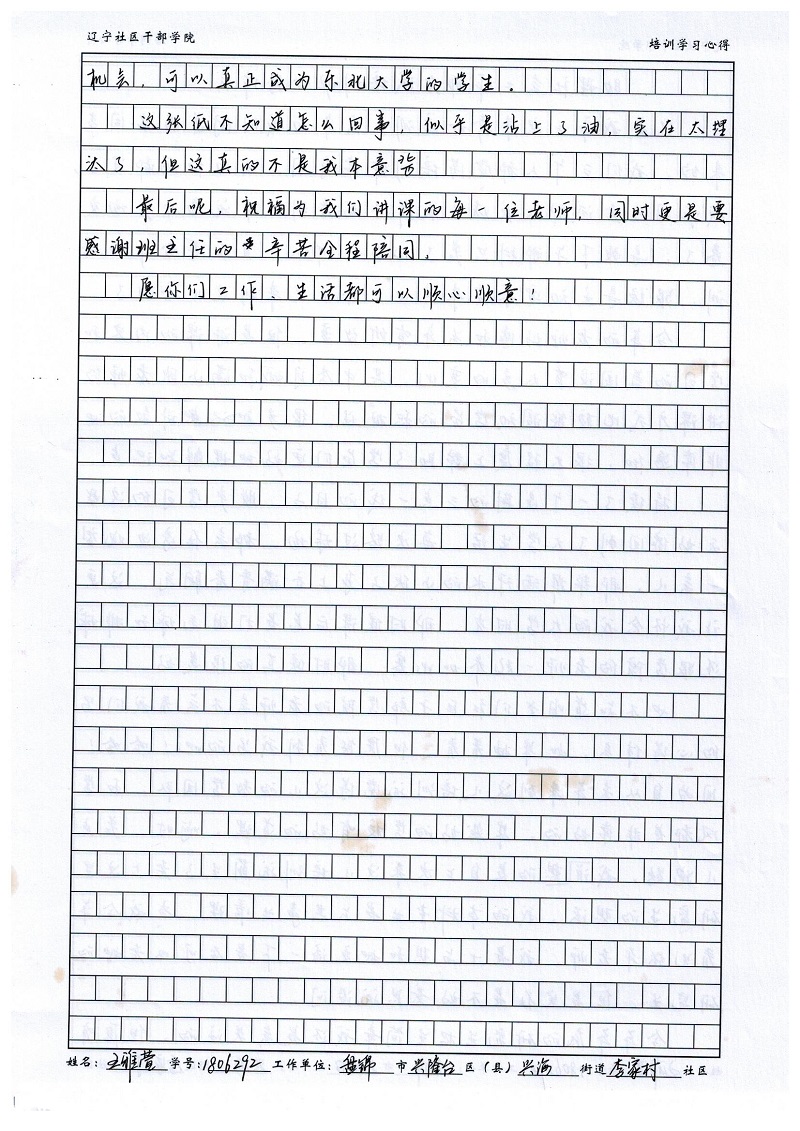 辽宁社区干部学院
培训学习心得
机会，可以真正成为东北大学的学生。
这张纸不知道怎么回事，似乎是沾上了油，实在太埋
汰了，但这真的不是我本意
最后呢，祝福为我们讲课的每一位老师，同时更是要
感谢班主任的辛苦全程陪同，
愿你们工作、生活都可以顺心顺意！
姓名：王雅萱 学号：1806292 工作单位：盘锦 市 兴隆台 区（县） 兴海 街道 李家村 社区